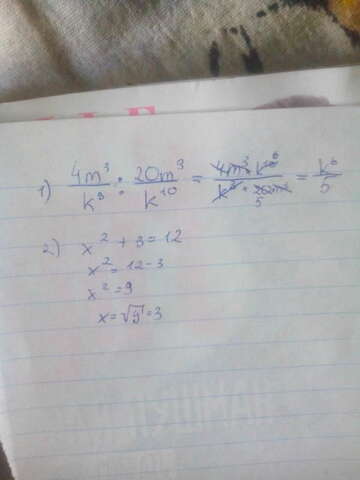 1) 4m³/k⁸ : 20m³/k¹⁰ = 4m³ k¹⁰ ⁶/k⁸ · 20m³ 5 = k⁶/5
2) x² + 3 = 12
x² = 12 - 3
x² = 9
x = √9 = 3